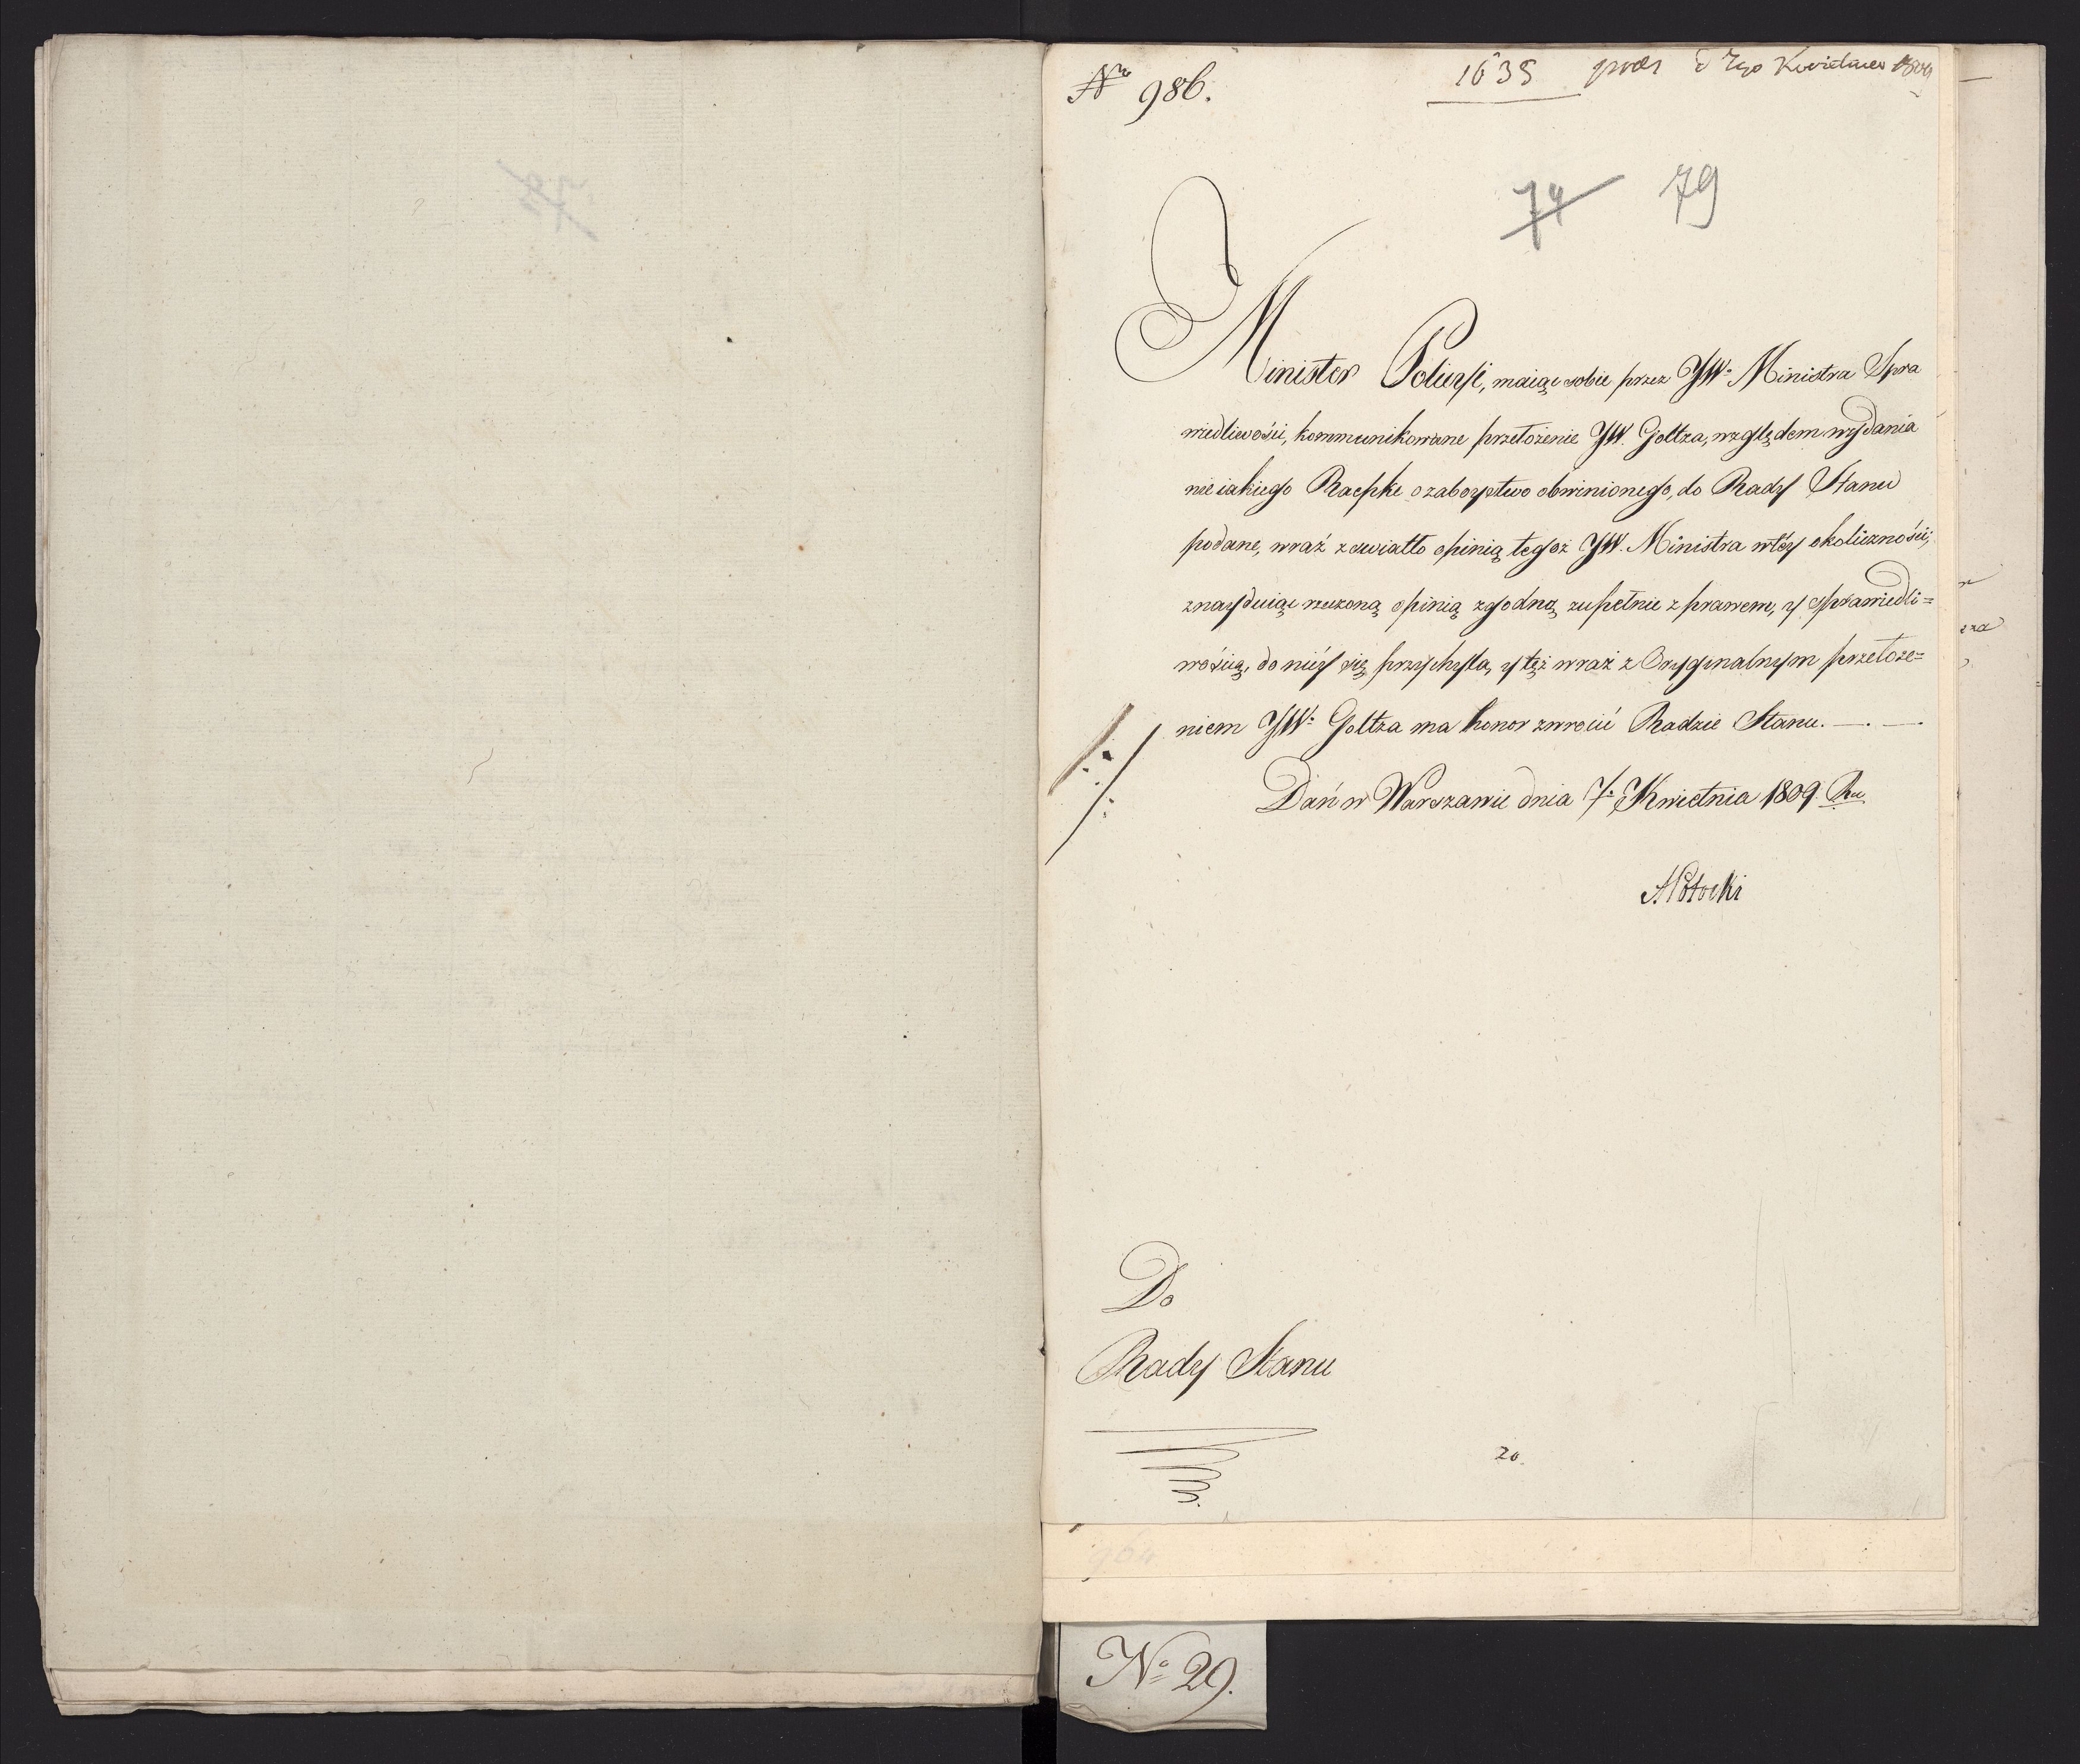 Nro 986.
1635 prod d 7go Kwietnia 1809
74 79
Minister Policyi, maiąc sobie przez JW. Ministra Spra
wiedliwości, kommunikowane przełożenie JW. Goltza, względem wydania
nieiakiego Raepke o zaboystwo obwinionego, do Rady Stanu
podane, wraź z światło opinią tegoż JW. Ministra w téy okoliczności,
znayduiąc rzeczoną opinią zgodną zupełnie z prawem, y sprawiedli=
wością, do niéy się przychyla, y też wraź z Oryginalnym przełoże=
niem JW. Goltza ma honor zwrocić Radzie Stanu. —. —.
Dań w Warszawie dnia 7. Kwietnia 1809. Ru
APotocki
Do
Rady Stanu
20.
No 29.